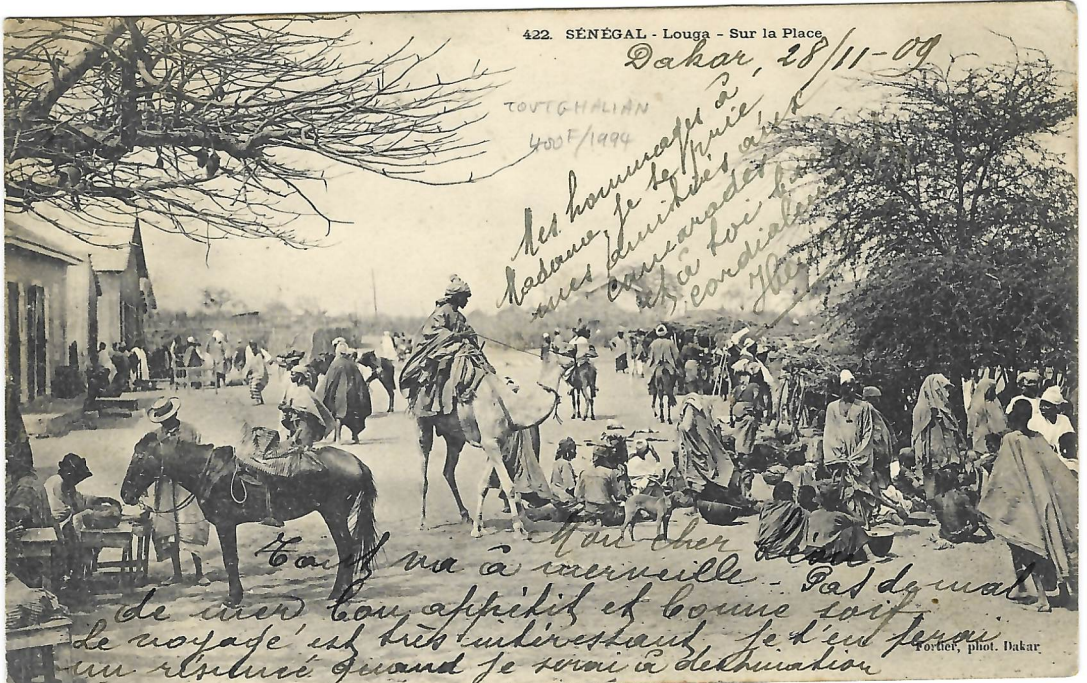 422. SÉNÉGAL - Louga - Sur la Place
Dakar, 28/11-09
TOUTGHALIAN
400F/1994
Mes hommages à
Madame, je te prie,
mes amitiés aux
camarades
et à toi bien
cordialement
Mon cher Léon
Tout va à merveille. Pas de mal
de mer, bon appétit et bonne soif.
Le voyage est très intéressant, je t'en ferai
un résumé quand je serai à destination
Fortier, phot. Dakar